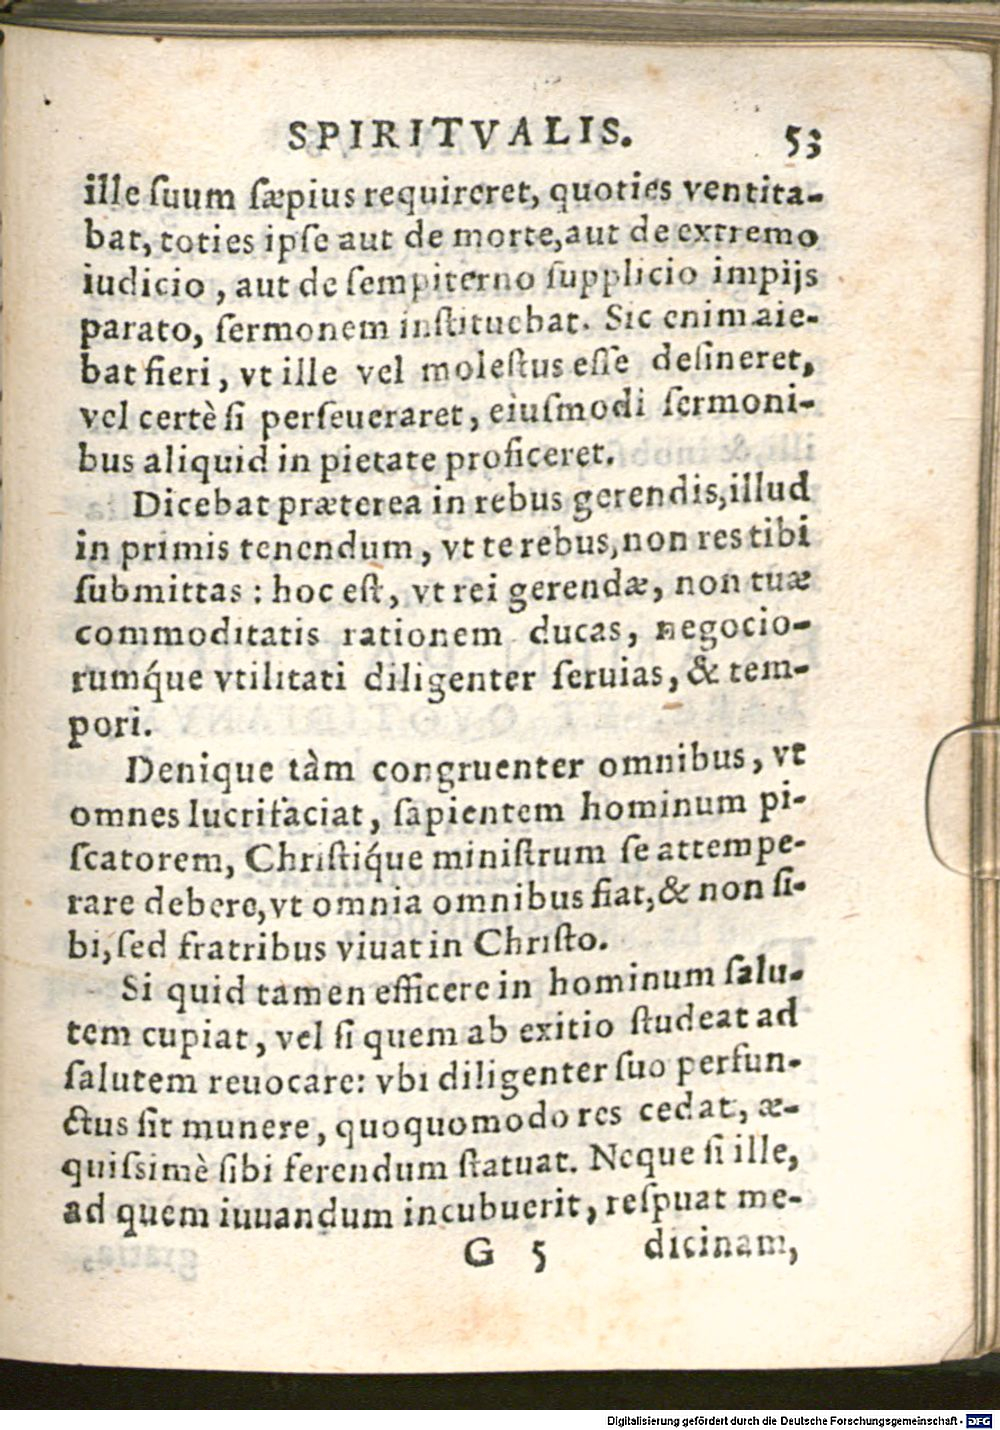 SPIRITVALIS. 53
ille ſuum ſæpius requireret, quoties ventita-
bat, toties ipſe aut de morte, aut de extremo
iudicio, aut de ſempiterno ſupplicio impijs
parato, ſermonem inſtituebat. Sic enim aie-
bat fieri, vt ille vel moleſtus eſſe deſineret,
vel certè ſi perſeueraret, eiuſmodi ſermoni-
bus aliquid in pietate proficeret.
Dicebat præterea in rebus gerendis, illud
in primis tenendum, vt te rebus, non res tibi
ſubmittas : hoc eſt, vt rei gerendæ, non tuæ
commoditatis rationem ducas, negocio-
rumq́ue vtilitati diligenter ſeruias, & tem-
pori.
Denique tàm congruenter omnibus, vt
omnes lucrifaciat, ſapientem hominum pi-
ſcatorem, Chriſtiq́ue miniſtrum ſe attempe-
rare debere, vt omnia omnibus fiat, & non ſi-
bi, ſed fratribus viuat in Chriſto.
Si quid tamen efficere in hominum ſalu-
tem cupiat, vel ſi quem ab exitio ſtudeat ad
ſalutem reuocare: vbi diligenter ſuo perfun-
ctus ſit munere, quoquomodo res cedat, æ-
quiſsimè ſibi ferendum ſtatuat. Neque ſi ille,
ad quem iuuandum incubuerit, reſpuat me-
G 5 dicinam,
Digitalisierung gefördert durch die Deutsche Forschungsgemeinschaft - DFG